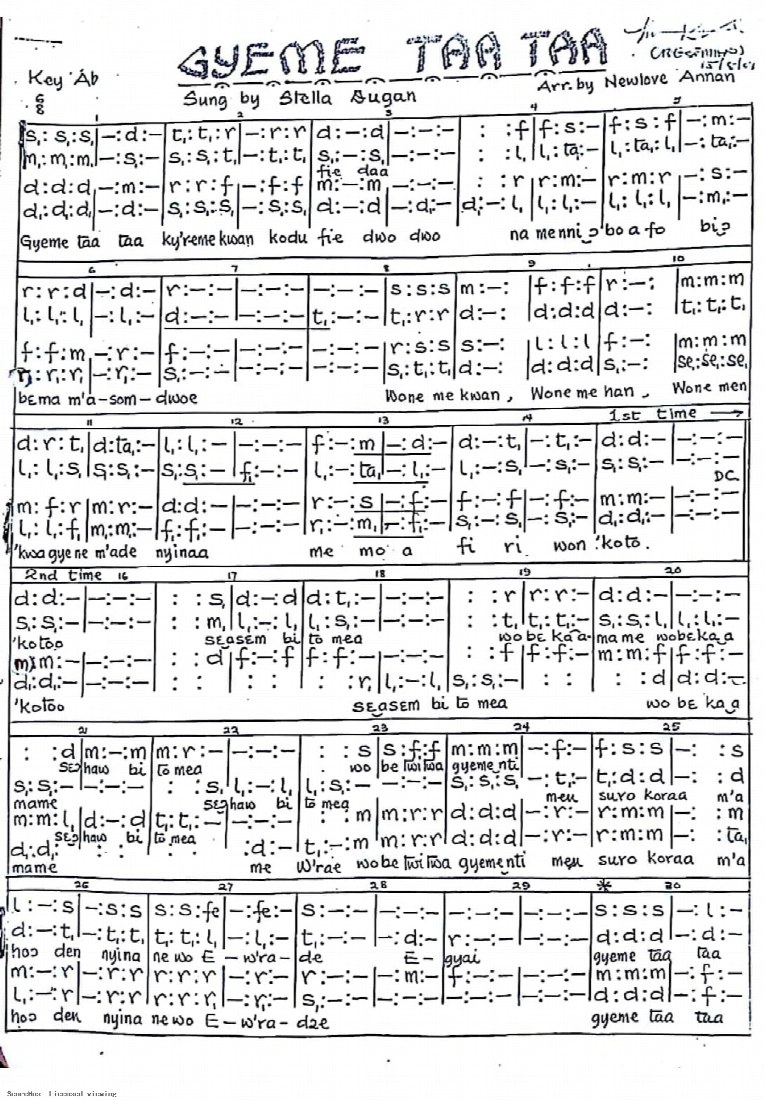 GYEME TAA TAA
Key Ab
6
8
Sung by Stella Dugan
Arr. by Newlove Annan
1 2 3 4 5
s,:s,:s,|–:d:–|t,:t,:r|–:r:r|d:–:d|–:–:–| : :f|f:s:–|f:s:f|–:m:–
m,:m,:m,|–:s,:–|s,:s,:t,|–:t,:t,|s,:–:s,|–:–:–| : :l,|l,:ta,:–|l,:ta,:l,|–:ta,:–
fie daa
d:d:d|–:m:–|r:r:f|–:f:f|m:–:m|–:–:–| : :r|r:m:–|r:m:r|–:s:–
d,:d,:d,|–:d:–|s,:s,:s,|–:s,:s,|d:–:d|–:d,:–|d,:–:l,|l,:l,:–|l,:l,:l,|–:m,:–
Gyeme taa taa ky'reme kwan kodu fie dwo dwo na menni ɔ'bo a fo biɔ
6 7 8 9 10
r:r:d|–:d:–|r:–:–|–:–:–|–:–:–|s:s:s|m:–:|f:f:f|r:–:|m:m:m
l,:l,:l,|–:l,:–|d:–:–|–:–:–|t,:–:–|t,:r:r|d:–:|d:d:d|d:–:|t,:t,:t,
f:f:m|–:r:–|f:–:–|–:–:–|–:–:–|r:s:s|s:–:|l:l:l|f:–:|m:m:m
r,:r,:r,|–:r,:–|s,:–:–|–:–:–|–:–:–|s,:t,:t,|d:–:|d:d:d|s,:–:|se,:se,:se,
bɛma m'a-som-dwoe Wone me kwan, Wone me han, Wone men
11 12 13 14 1st time →
d:r:t,|d:ta,:–|l,:l,:–|–:–:–|f:–:m|–:d:–|d:–:t,|–:t,:–|d:d:–|–:–:–
l,:l,:s,|s,:s,:–|s,:s,:–|f,:–:–|l,:–:ta,|–:l,:–|l,:–:s,|–:s,:–|s,:s,:–|–:–:–
DC
m:f:r|m:r:–|d:d:–|–:–:–|r:–:s|–:f:–|f:–:f|–:f:–|m:m:–|–:–:–
l,:l,:f,|m,:m,:–|f,:f,:–|–:–:–|r,:–:m,|–:f,:–|s,:–:s,|–:s,:–|d,:d,:–|–:–:–
'kwa gye ne m'ade nyinaa me mo a fi ri won 'koto.
2nd time 16 17 18 19 20
d:d:–|–:–:–| : :s,|d:–:d|d:t,:–|–:–:–| : :r|r:r:–|d:d:–|–:–:–
s,:s,:–|–:–:–| : :m,|l,:–:l,|l,:s,:–|–:–:–| : :t,|t,:t,:–|s,:s,:l,|l,:l,:–
'kotoo sɛasɛm bi to mea wo bɛ ka a-ma me wobɛ ka a
m:m:–|–:–:–| : :d|f:–:f|f:f:–|–:–:–| : :f|f:f:–|m:m:f|f:f:–
d,:d,:–|–:–:–| : : | : : | : :r,|l,:–:l,|s,:s,:–| : : | : :d|d:d:–
'kotoo sɛasɛm bi to mea wo bɛ ka a
21 22 23 24 25
: :d|m:–:m|m:r:–|–:–:–| : :s|s:f:f|m:m:m|–:f:–|f:s:s|–: :s
sɛɔhaw bi to mea wo be twitwa gyementi
s,:s,:–|–:–:–| : :s,|l,:–:l,|l,:s,:–
mame sɛɔhaw bi to mea meu suro koraa m'a
m:m:l,|d:–:d|t,:t,:–|–:–:–| : :m|m:r:r|d:d:d|–:r:–|r:m:m|–: :m
sɛɔhaw bi to mea
mame me W'rae wobe twitwa gyementi meu suro koraa m'a
26 27 28 29 * 30
l:–:s|–:s:s|s:s:fe|–:fe:–|s:–:–|–:–:–|–:–:–|–:–:–|s:s:s|–:l:–
d:–:t,|–:t,:t,|t,:t,:l,|–:l,:–|t,:–:–|–:d:–|r:–:–|–:–:–|d:d:d|–:d:–
hoɔ den nyina ne wo E-w'ra-de E-gyai gyeme taa taa
m:–:r|–:r:r|r:r:r|–:r:–|r:–:–|–:m:–|f:–:–|–:–:–|m:m:m|–:f:–
l,:–:r|–:r:r|r:r:r,|–:r,:–|s,:–:–|–:–:–|–:–:–|–:–:–|d:d:d|–:f:–
hoɔ den nyina ne wo E-w'ra-dze gyeme taa taa